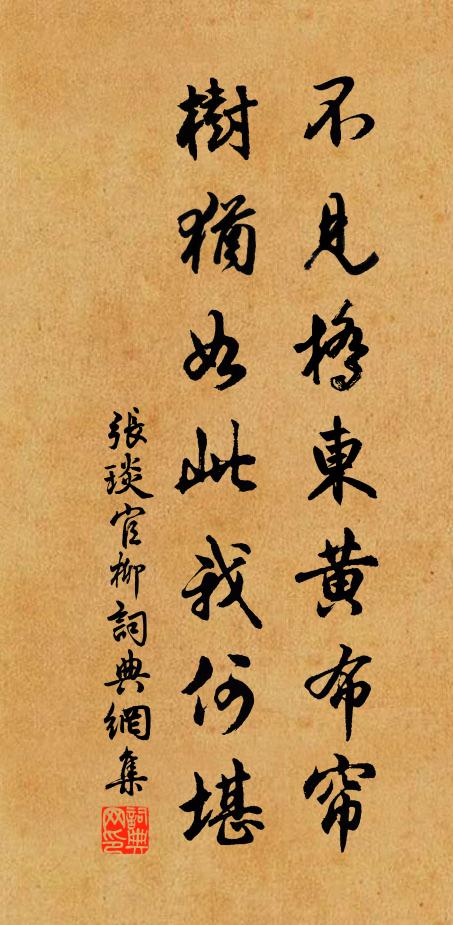 不見橋東黃布帘
樹猶如此我何堪
張琰官柳詞典網集
詞典網印